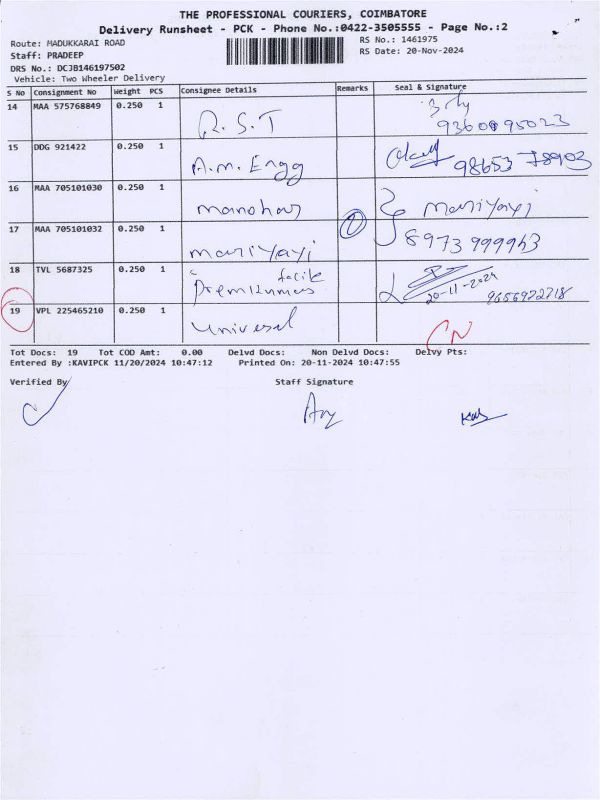 THE PROFESSIONAL COURIERS, COIMBATORE
Delivery Runsheet - PCK - Phone No.:0422-3505555 - Page No.:2
Route: MADUKKARAI ROAD
RS No.: 1461975
Staff: PRADEEP
RS Date: 20-Nov-2024
DRS No.: DCJB146197502
Vehicle: Two Wheeler Delivery
S No Consignment No Weight PCS Consignee Details Remarks Seal & Signature
14 MAA 575768849 0.250 1 R.S.T
15 DDG 921422 0.250 1 A.M. Engg 98653 78903
16 MAA 705101030 0.250 1 manohar mariyayi
17 MAA 705101032 0.250 1 mariyayi 8973999963
18 TVL 5687325 0.250 1 Premkumar 20-11-2024 9656922718
19 VPL 225465210 0.250 1 Universal CN
Tot Docs: 19 Tot COD Amt: 0.00 Delvd Docs: Non Delvd Docs: Delvy Pts:
Entered By :KAVIPCK 11/20/2024 10:47:12 Printed On: 20-11-2024 10:47:55
Verified By Staff Signature